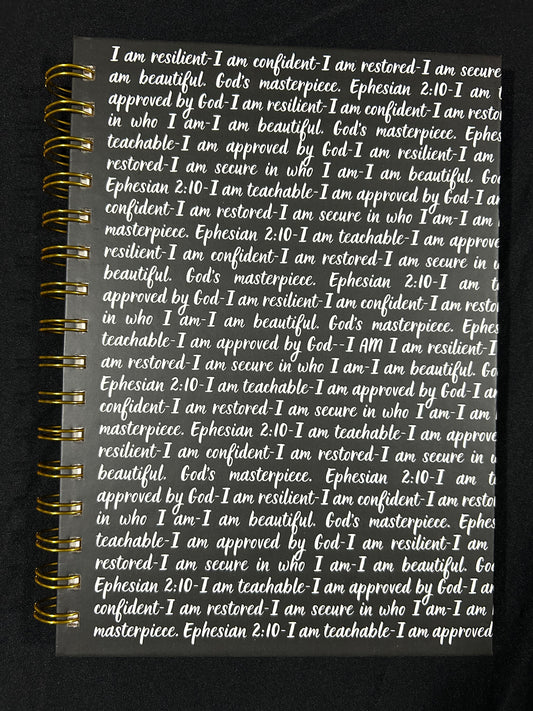 I am resilient-I am confident-I am restored-I am secure
am beautiful. God's masterpiece. Ephesian 2:10-I am t
approved by God-I am resilient-I am confident-I am resto
in who I am-I am beautiful. God's masterpiece. Ephes
teachable-I am approved by God-I am resilient-I am
restored-I am secure in who I am-I am beautiful. Go
Ephesian 2:10-I am teachable-I am approved by God-I ar
confident-I am restored-I am secure in who I am-I am
masterpiece. Ephesian 2:10-I am teachable-I am approve
resilient-I am confident-I am restored-I am secure in u
beautiful. God's masterpiece. Ephesian 2:10-I am t
approved by God-I am resilient-I am confident-I am resto
in who I am-I am beautiful. God's masterpiece. Ephes
teachable-I am approved by God--I AM I am resilient-I
am restored-I am secure in who I am-I am beautiful. Go
Ephesian 2:10-I am teachable-I am approved by God-I ar
confident-I am restored-I am secure in who I am-I am
masterpiece. Ephesian 2:10-I am teachable-I am approve
resilient-I am confident-I am restored-I am secure in u
beautiful. God's masterpiece. Ephesian 2:10-I am t
approved by God-I am resilient-I am confident-I am resto
in who I am-I am beautiful. God's masterpiece. Ephes
teachable-I am approved by God-I am resilient-I am
restored-I am secure in who I am-I am beautiful. Go
Ephesian 2:10-I am teachable-I am approved by God-I ar
confident-I am restored-I am secure in who I am-I am
masterpiece. Ephesian 2:10-I am teachable-I am approved